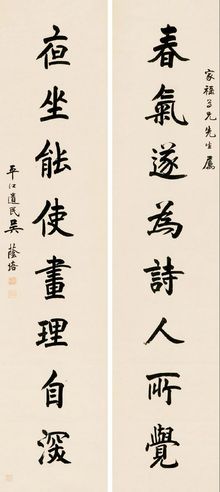 家福子兄先生屬
春氣遂為詩人所覺
夜坐能使畫理自深
平江遺民吳蔭培